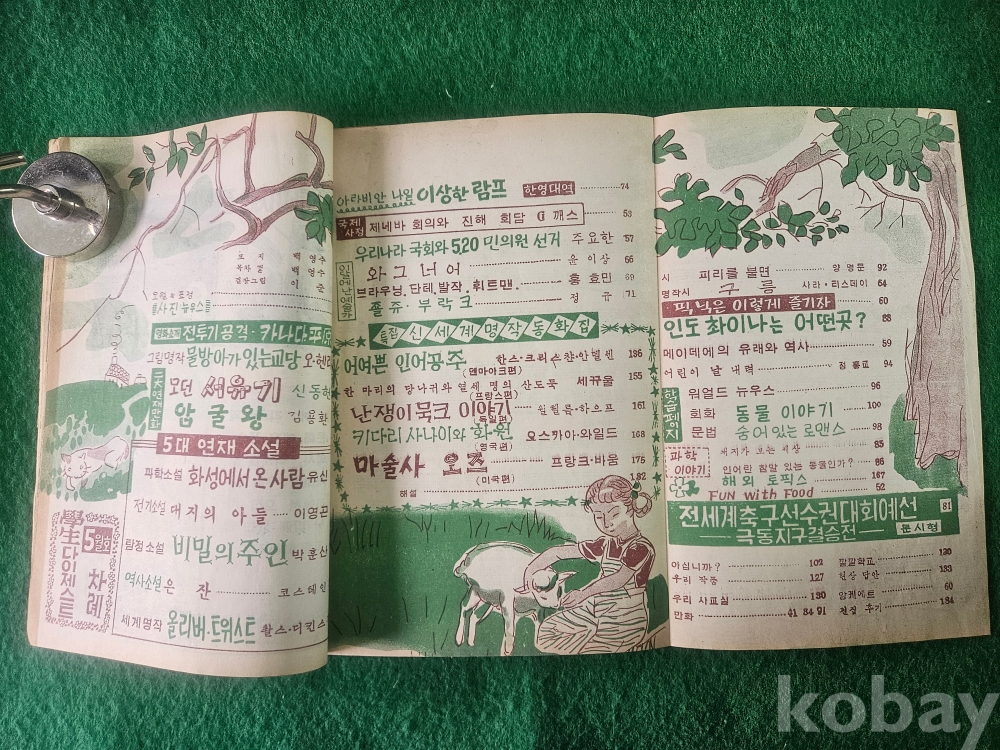 學生다이제스트
5월호 차례
표지 백영수
목차 컷 백영수
컬상그림 이준
화보사진뉴우스
영화소개 전투기공격·카나다
그림명작 물방아가있는교당 오·헨리
二大연재만화
모던 서유기 신동헌
암굴왕 김용환
5대 연재 소설
과학소설 화성에서온사람 유신
전기소설 대지의 아들 이영
탐정소설 비밀의주인 박훈산
역사소설 은 잔 코스테인
세계명작 올리버·트위스트 촬스·디킨스
아라비안 나일 이상한 람프 한영대역 74
국제사정 제네바 회의와 진해 회담 깨스 53
우리나라 국회와 5.20 민의원 선거 주요한 57
와그너어 윤이상 66
브라우닝, 단테, 발작, 휘트맨 홍효민 69
폴류·부락크 정규 71
특집 신세계명작동화집
어여쁜 인어공주 한스·크리스챤·안델센 136
(덴마아크편)
한 마리의 당나귀와 열세 명의 산도둑 세규울 155
(프랑스편)
난쟁이묵크 이야기 윌헬름·하으프 161
(독일편)
키다리 사나이와 화원 오스카아·와일드 168
(영국편)
마술사 오즈 프랑크·바움 175
(미국편)
해설 182
시 피리를 불면 양명문 92
명작시 구름 사라·티스데이 64
픽닉은 이렇게 즐기자 60
인도 화이나는 어떤곳? 88
메이데에의 유래와 역사 59
어린이 날 내력 정홍교 94
학습페이지
워얼드 뉴우스 96
회화 동물 이야기 100
문법 숨어있는로맨스 98
과학 이야기
인어란 참말 있는 동물인가? 86
해외 토픽스 167
FUN with FOOD 52
전세계축구선수권대회예선 81
극동지구결승전 문시형
아십니까? 102
우리 작품 127
우리 사교실 130
만화 41 84 91
깔깔학교 120
현상 답안 133
앙케에트 60
편집 후기 184
kobay